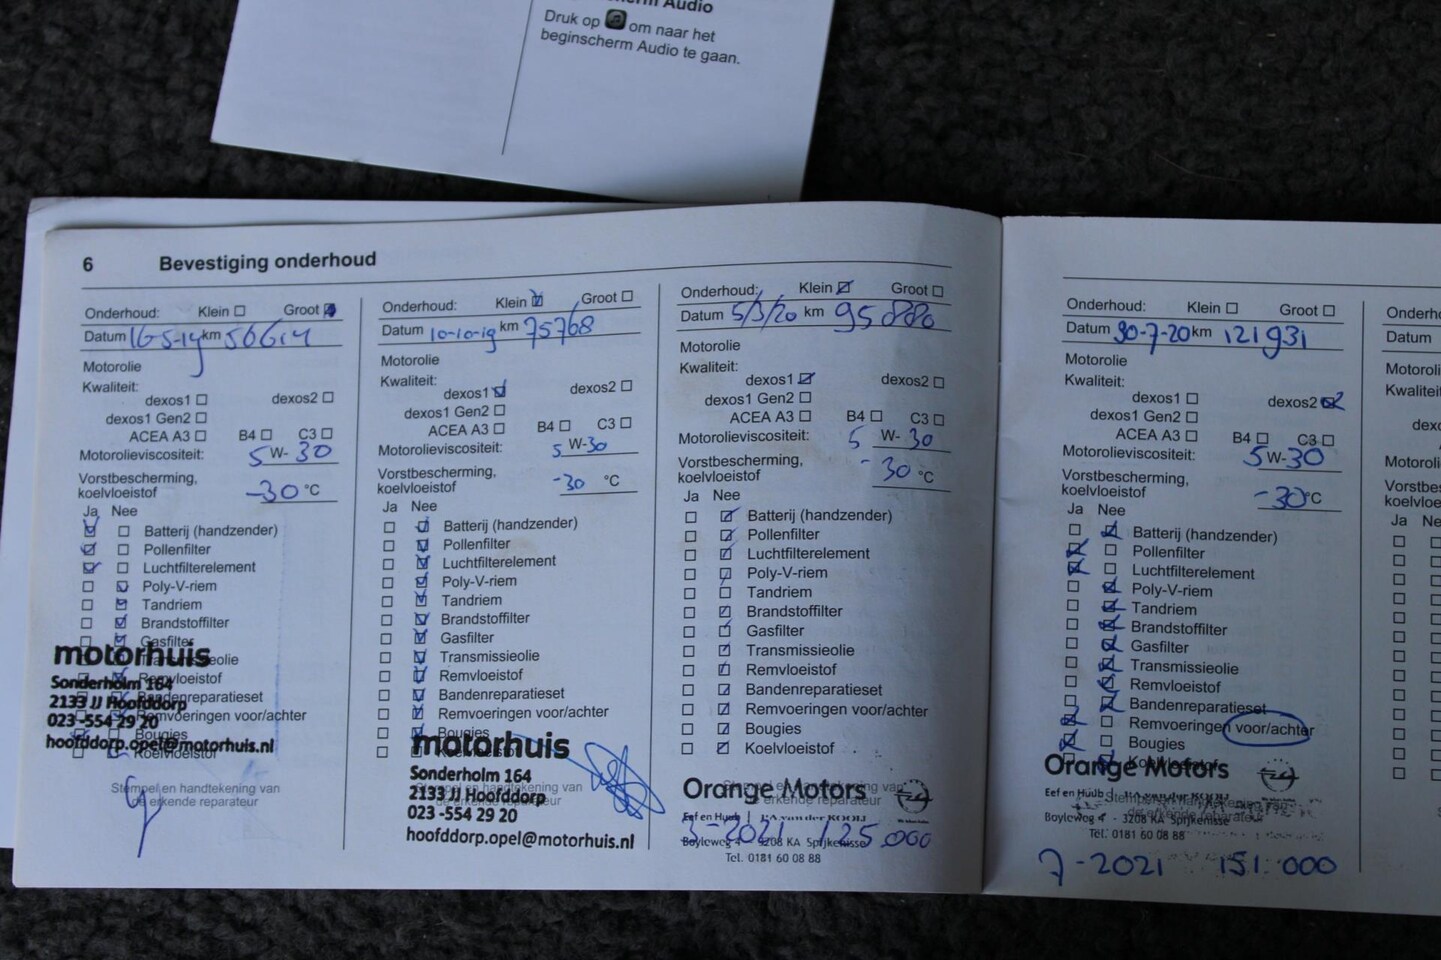 Audio
Druk op om naar het
beginscherm Audio te gaan.
6 Bevestiging onderhoud
Onderhoud: Klein Groot
Datum 16-5-19 km 56614
Motorolie
Kwaliteit:
dexos1 dexos2
dexos1 Gen2
ACEA A3 B4 C3
Motorolieviscositeit: 5 W- 30
Vorstbescherming,
koelvloeistof -30 °C
Ja Nee
Batterij (handzender)
Pollenfilter
Luchtfilterelement
Poly-V-riem
Tandriem
Brandstoffilter
Gasfilter
Transmissieolie
Remvloeistof
Bandenreparatieset
Remvoeringen voor/achter
Bougies
Koelvloeistof
motorhuis
Sonderholm 164
2133 JJ Hoofddorp
023 -554 29 20
hoofddorp.opel@motorhuis.nl
Stempel en handtekening van
de erkende reparateur
Onderhoud: Klein Groot
Datum 10-10-19 km 75768
Motorolie
Kwaliteit:
dexos1 dexos2
dexos1 Gen2
ACEA A3 B4 C3
Motorolieviscositeit: 5 W-30
Vorstbescherming,
koelvloeistof -30 °C
Ja Nee
Batterij (handzender)
Pollenfilter
Luchtfilterelement
Poly-V-riem
Tandriem
Brandstoffilter
Gasfilter
Transmissieolie
Remvloeistof
Bandenreparatieset
Remvoeringen voor/achter
Bougies
motorhuis
Sonderholm 164
2133 JJ Hoofddorp
023 -554 29 20
hoofddorp.opel@motorhuis.nl
Stempel en handtekening van
de erkende reparateur
Onderhoud: Klein Groot
Datum 5/3/20 km 95880
Motorolie
Kwaliteit:
dexos1 dexos2
dexos1 Gen2
ACEA A3 B4 C3
Motorolieviscositeit: 5 W- 30
Vorstbescherming,
koelvloeistof -30 °C
Ja Nee
Batterij (handzender)
Pollenfilter
Luchtfilterelement
Poly-V-riem
Tandriem
Brandstoffilter
Gasfilter
Transmissieolie
Remvloeistof
Bandenreparatieset
Remvoeringen voor/achter
Bougies
Koelvloeistof
Stempel en handtekening van
de erkende reparateur
Orange Motors
Eef en Huub
3-2021 125.000
Boyleweg 4 - 3208 KA Spijkenisse
Tel. 0181 60 08 88
Onderhoud: Klein Groot
Datum 30-7-20 km 121931
Motorolie
Kwaliteit:
dexos1 dexos2
dexos1 Gen2
ACEA A3 B4 C3
Motorolieviscositeit: 5 W-30
Vorstbescherming,
koelvloeistof -30 °C
Ja Nee
Batterij (handzender)
Pollenfilter
Luchtfilterelement
Poly-V-riem
Tandriem
Brandstoffilter
Gasfilter
Transmissieolie
Remvloeistof
Bandenreparatieset
Remvoeringen voor/achter
Bougies
Koelvloeistof
Orange Motors
Eef en Huub
Boyleweg 4 - 3208 KA Spijkenisse
Tel. 0181 60 08 88
7-2021 151.000
Datum
Ja